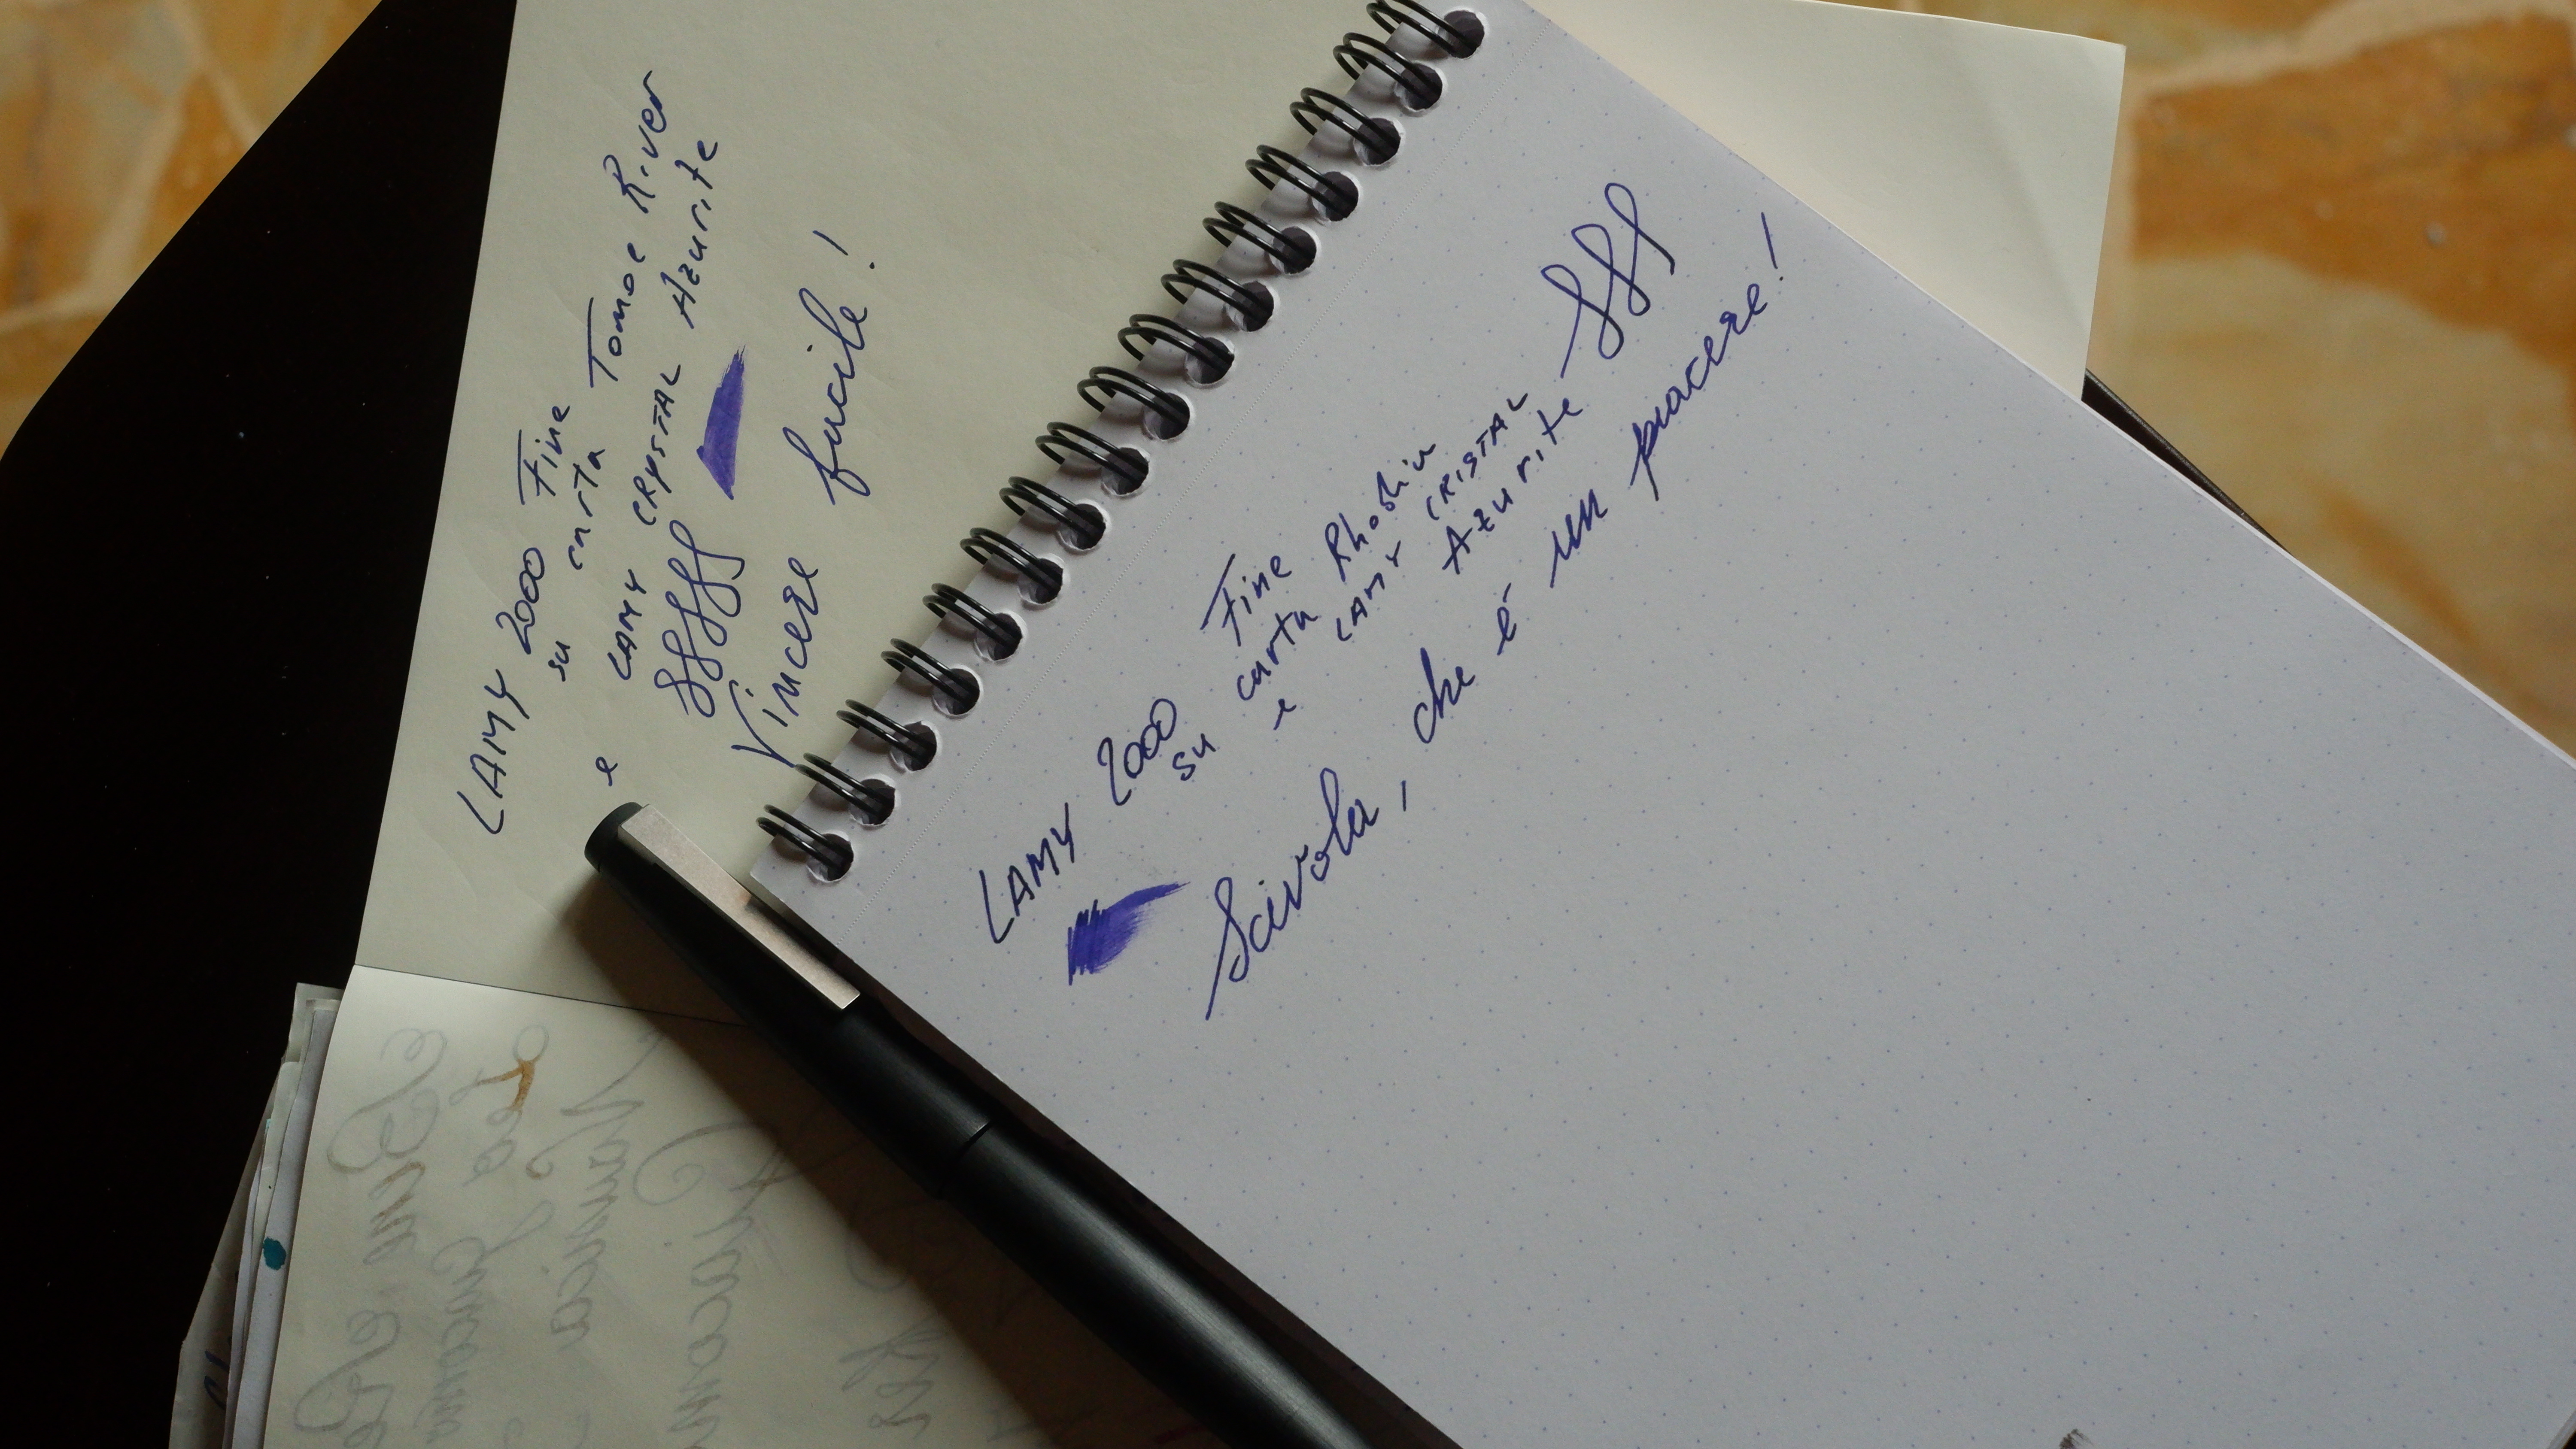 LAMY 2000 Fine
su carta Tomoe River
e LAMY CRYSTAL Azurite
ffff
Vincere facile!
LAMY 2000 Fine
su carta Rhodia
e LAMY CRISTAL
Azurite fff
Scivola, che é un piacere!